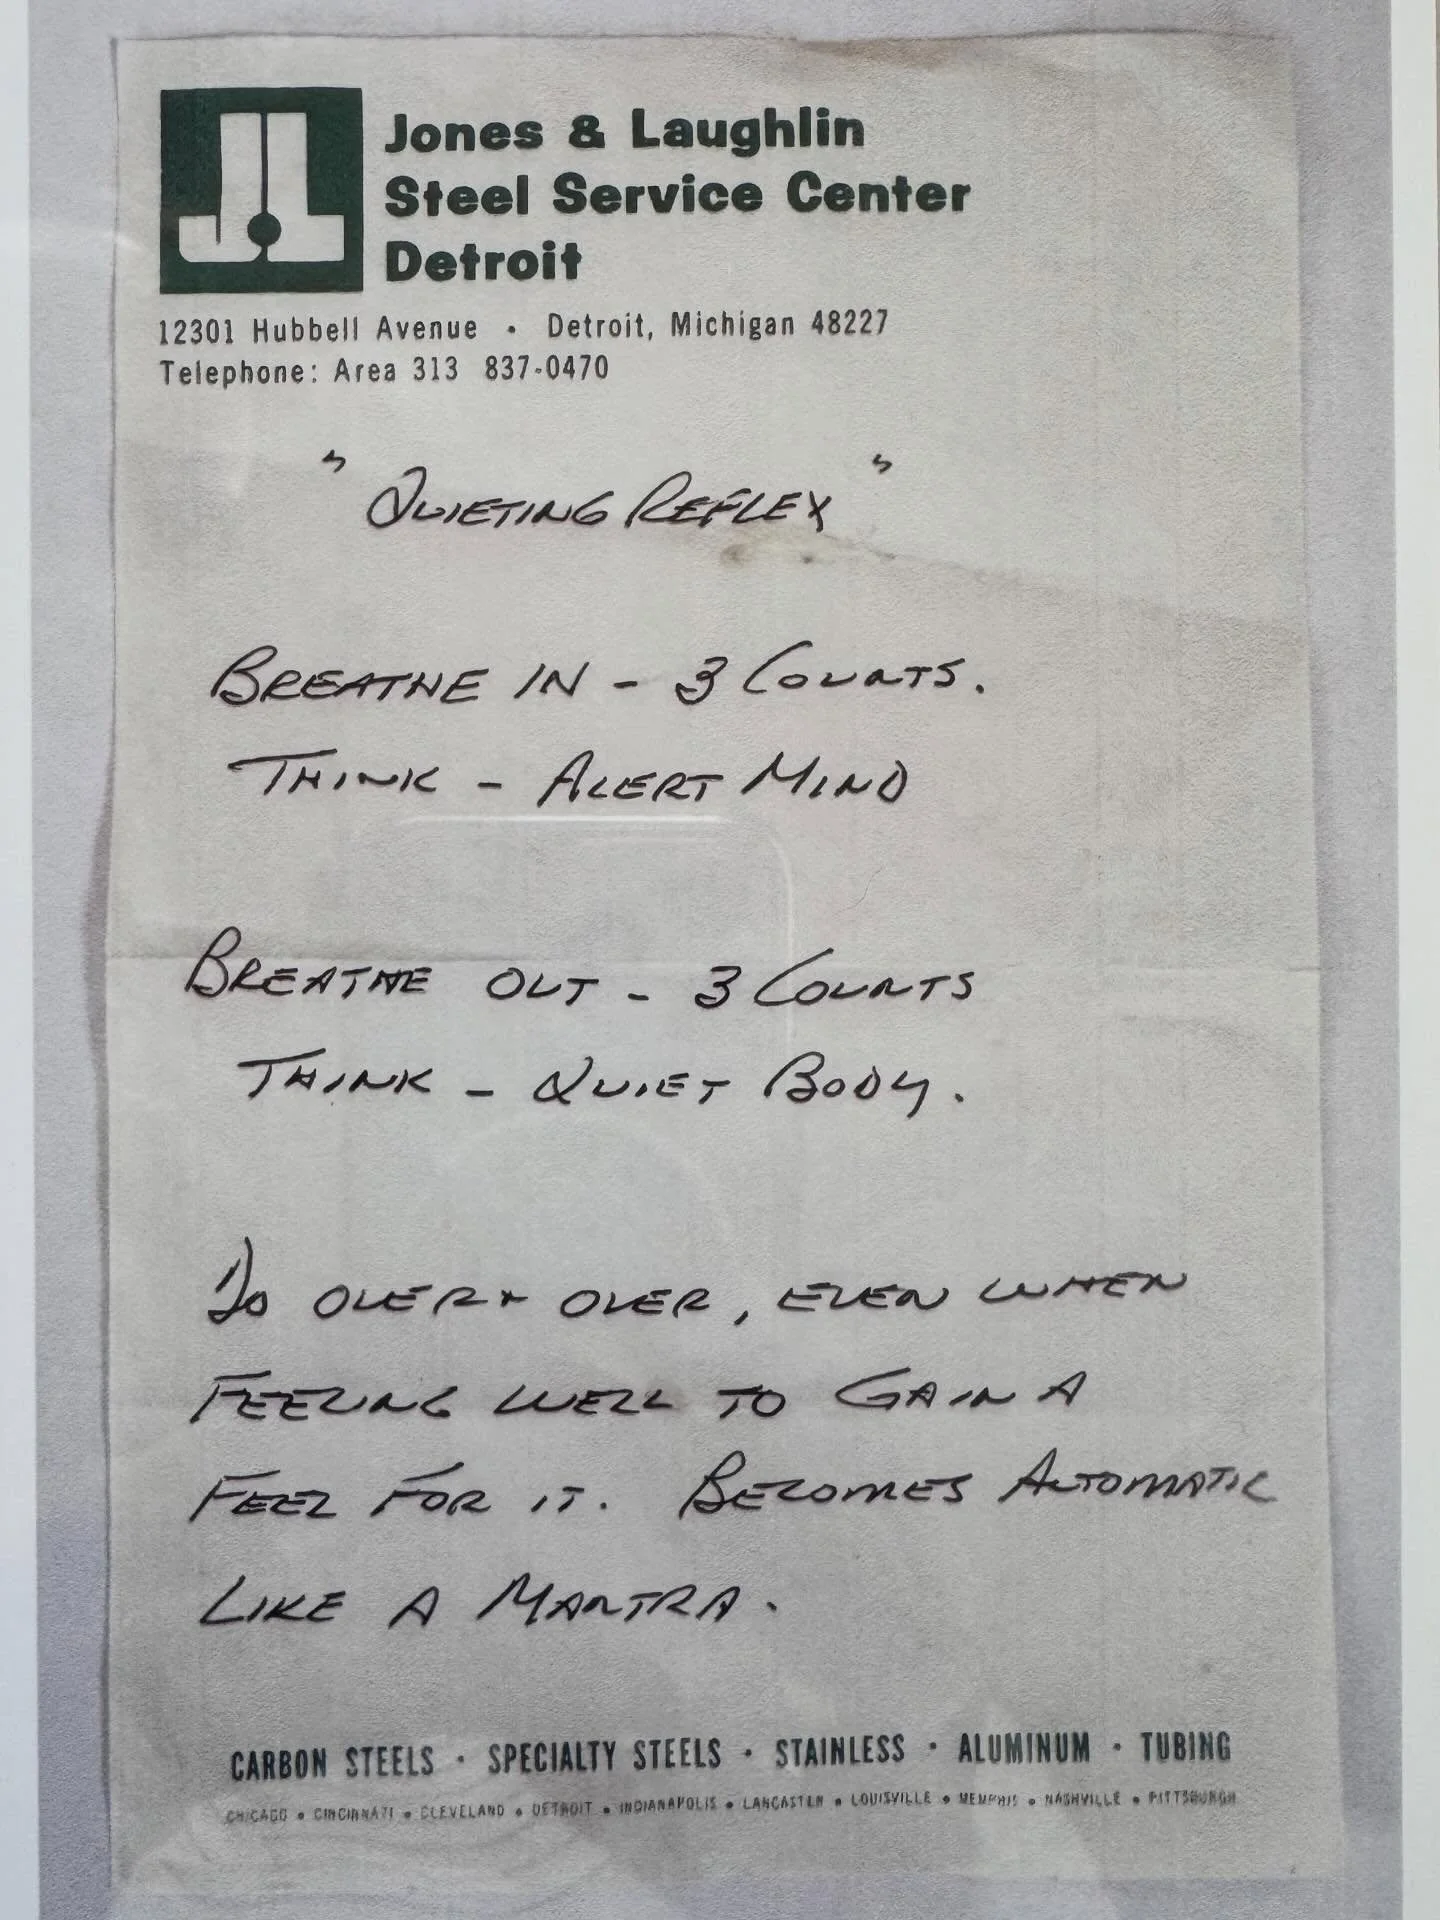 JL
Jones & Laughlin
Steel Service Center
Detroit
12301 Hubbell Avenue • Detroit, Michigan 48227
Telephone: Area 313 837-0470
"QUIETING REFLEX"
BREATHE IN - 3 COUNTS.
THINK - ALERT MIND
BREATHE OUT - 3 COUNTS
THINK - QUIET BODY.
DO OVER + OVER, EVEN WHEN
FEELING WELL TO GAIN A
FEEL FOR IT. BECOMES AUTOMATIC
LIKE A MANTRA.
CARBON STEELS • SPECIALTY STEELS • STAINLESS • ALUMINUM • TUBING
CHICAGO • CINCINNATI • CLEVELAND • DETROIT • INDIANAPOLIS • LANCASTER • LOUISVILLE • MEMPHIS • NASHVILLE • PITTSBURGH